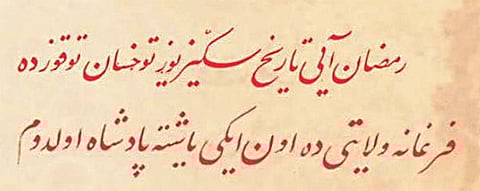 رمضان آیی تاریخ سکّیز یوز توخسان توقوز ده
فرغانه ولایتی ده اون ایکی یاشته پادشاه اولدوم